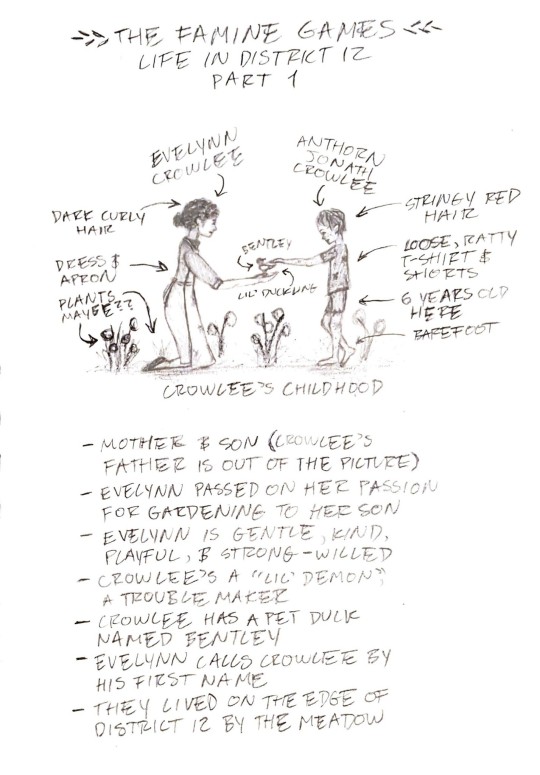 THE FAMINE GAMES
LIFE IN DISTRICT 12
PART 1
EVELYNN
CROWLEE
ANTHORN
JONATH
CROWLEE
DARK CURLY
HAIR
STRINGY RED
HAIR
BENTLEY
LIL' DUCKLING
DRESS &
APRON
LOOSE, RATTY
T-SHIRT &
SHORTS
PLANTS
MAYBE??
6 YEARS OLD
HERE
BAREFOOT
CROWLEE'S CHILDHOOD
- MOTHER & SON (CROWLEE'S
FATHER IS OUT OF THE PICTURE)
- EVELYNN PASSED ON HER PASSION
FOR GARDENING TO HER SON
- EVELYNN IS GENTLE, KIND,
PLAYFUL, & STRONG-WILLED
- CROWLEE'S A "LIL' DEMON",
A TROUBLE MAKER
- CROWLEE HAS A PET DUCK
NAMED BENTLEY
- EVELYNN CALLS CROWLEE BY
HIS FIRST NAME
- THEY LIVED ON THE EDGE OF
DISTRICT 12 BY THE MEADOW